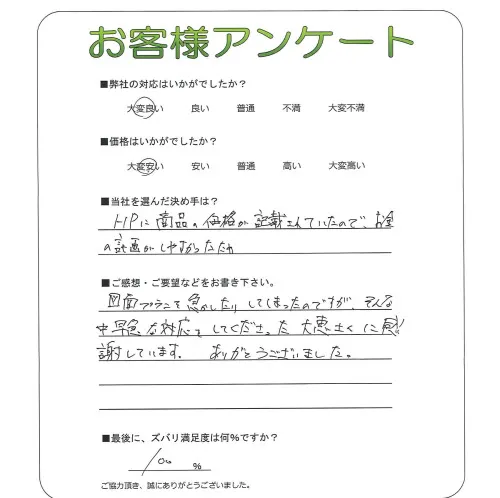 お客様アンケート
■弊社の対応はいかがでしたか？
大変良い 良い 普通 不満 大変不満
■価格はいかがでしたか？
大変安い 安い 普通 高い 大変高い
■当社を選んだ決め手は？
HPに商品の価格が記載されていたので、お金
の計画がしやすかったため
■ご感想・ご要望などをお書き下さい。
図面プランを急かしたりしてしまったのですが、そんな
中早急な対応をしてくださった大恵さんに感
謝しています。 ありがとうございました。
■最後に、ズバリ満足度は何％ですか？
100 ％
ご協力頂き、誠にありがとうございました。